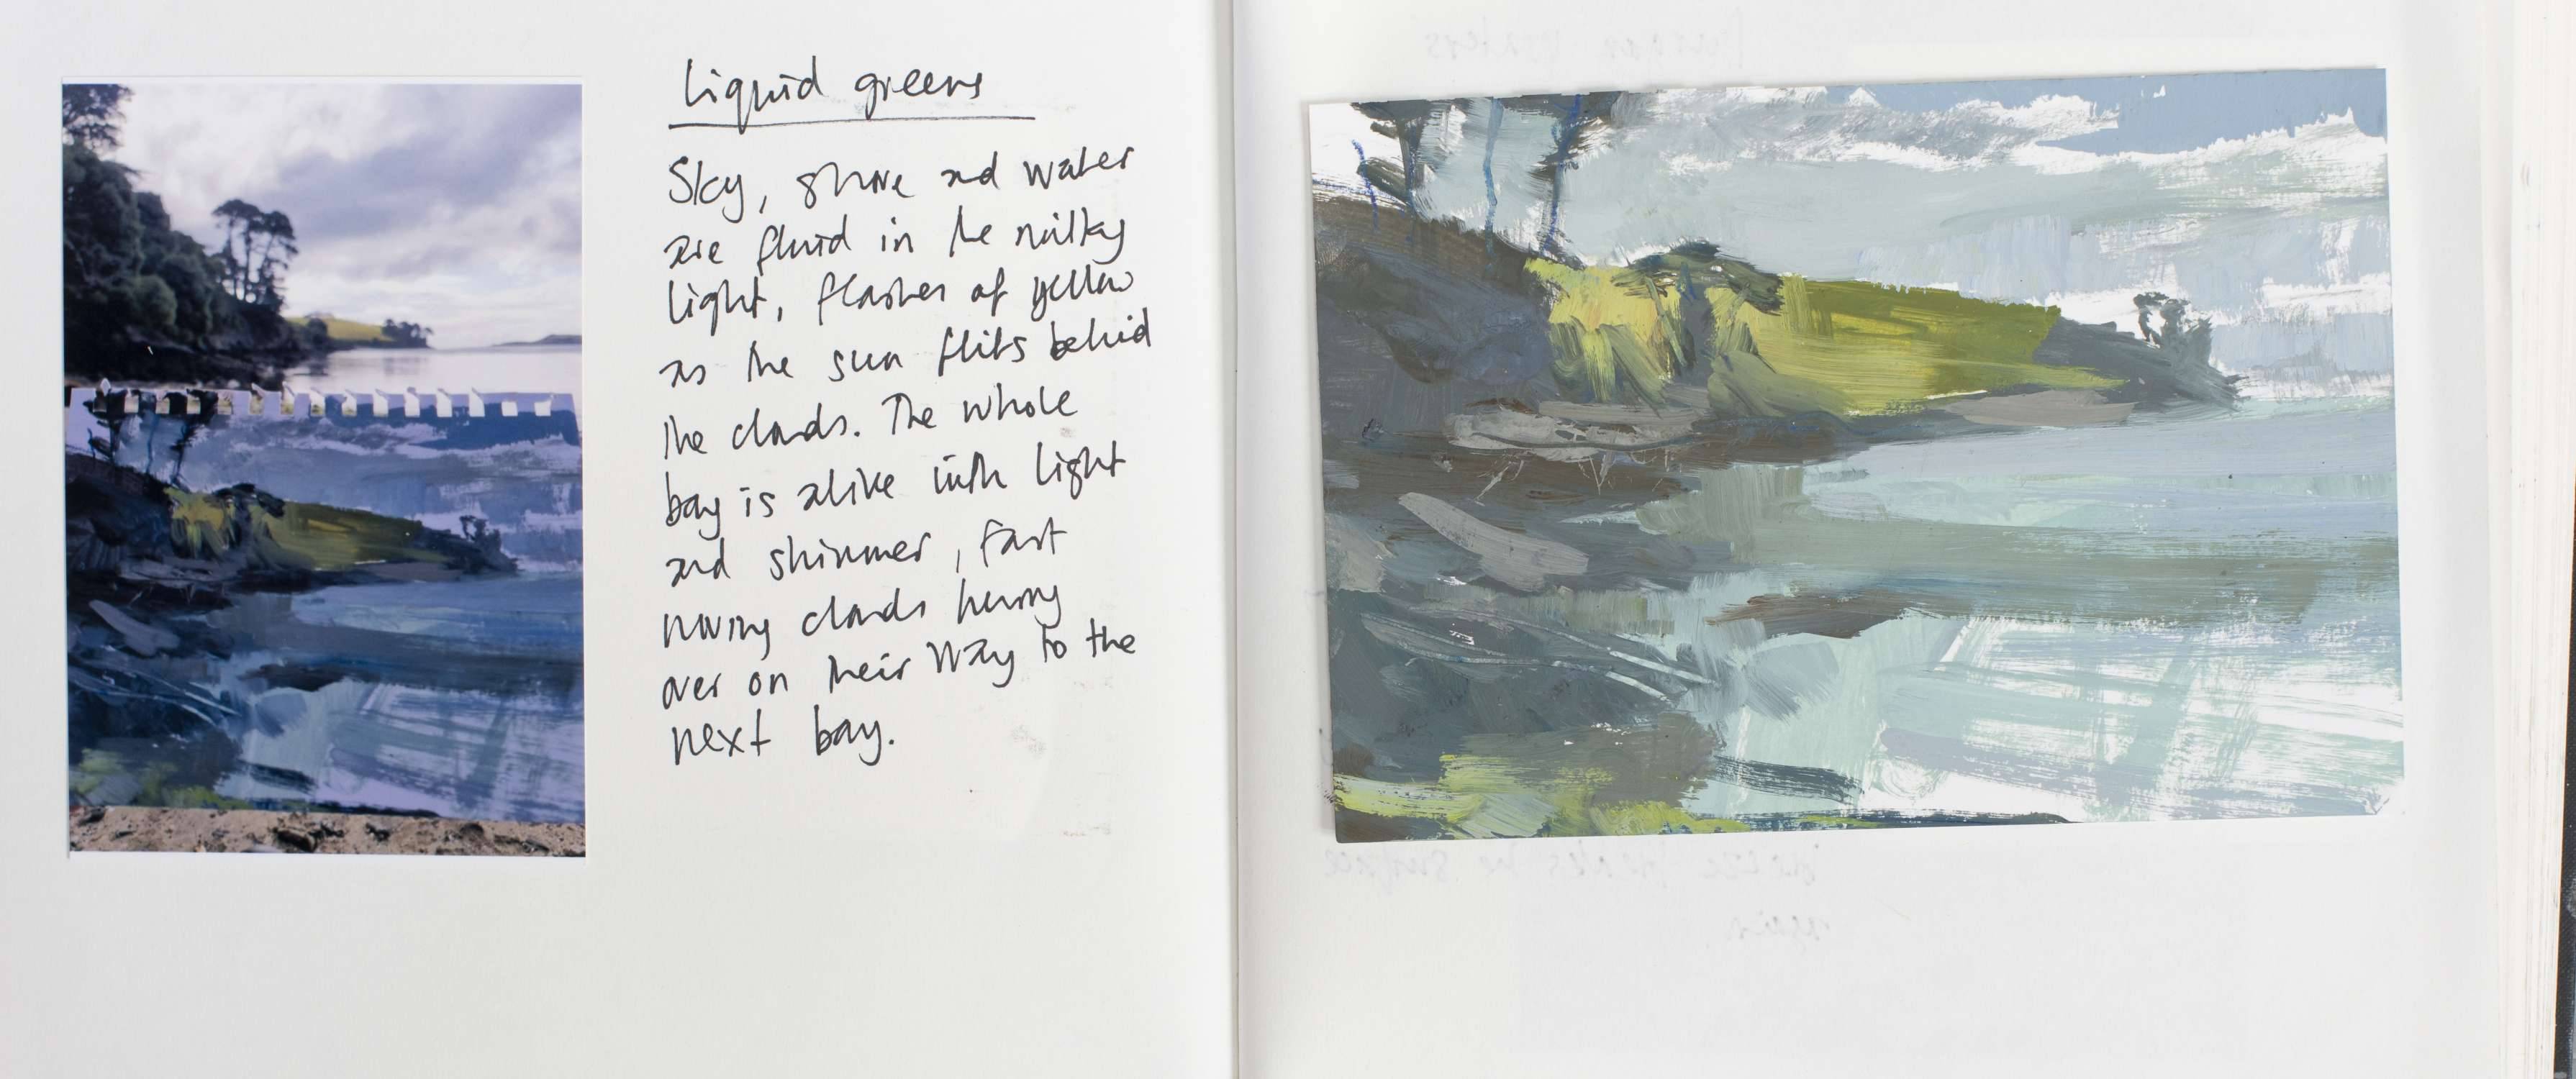 Liquid greens
Sky, shore and water
are fluid in the milky
light, flashes of yellow
as the sun flits behind
the clouds. The whole
bay is alive with light
and shimmer, fast
moving clouds hurrying
over on their way to the
next bay.